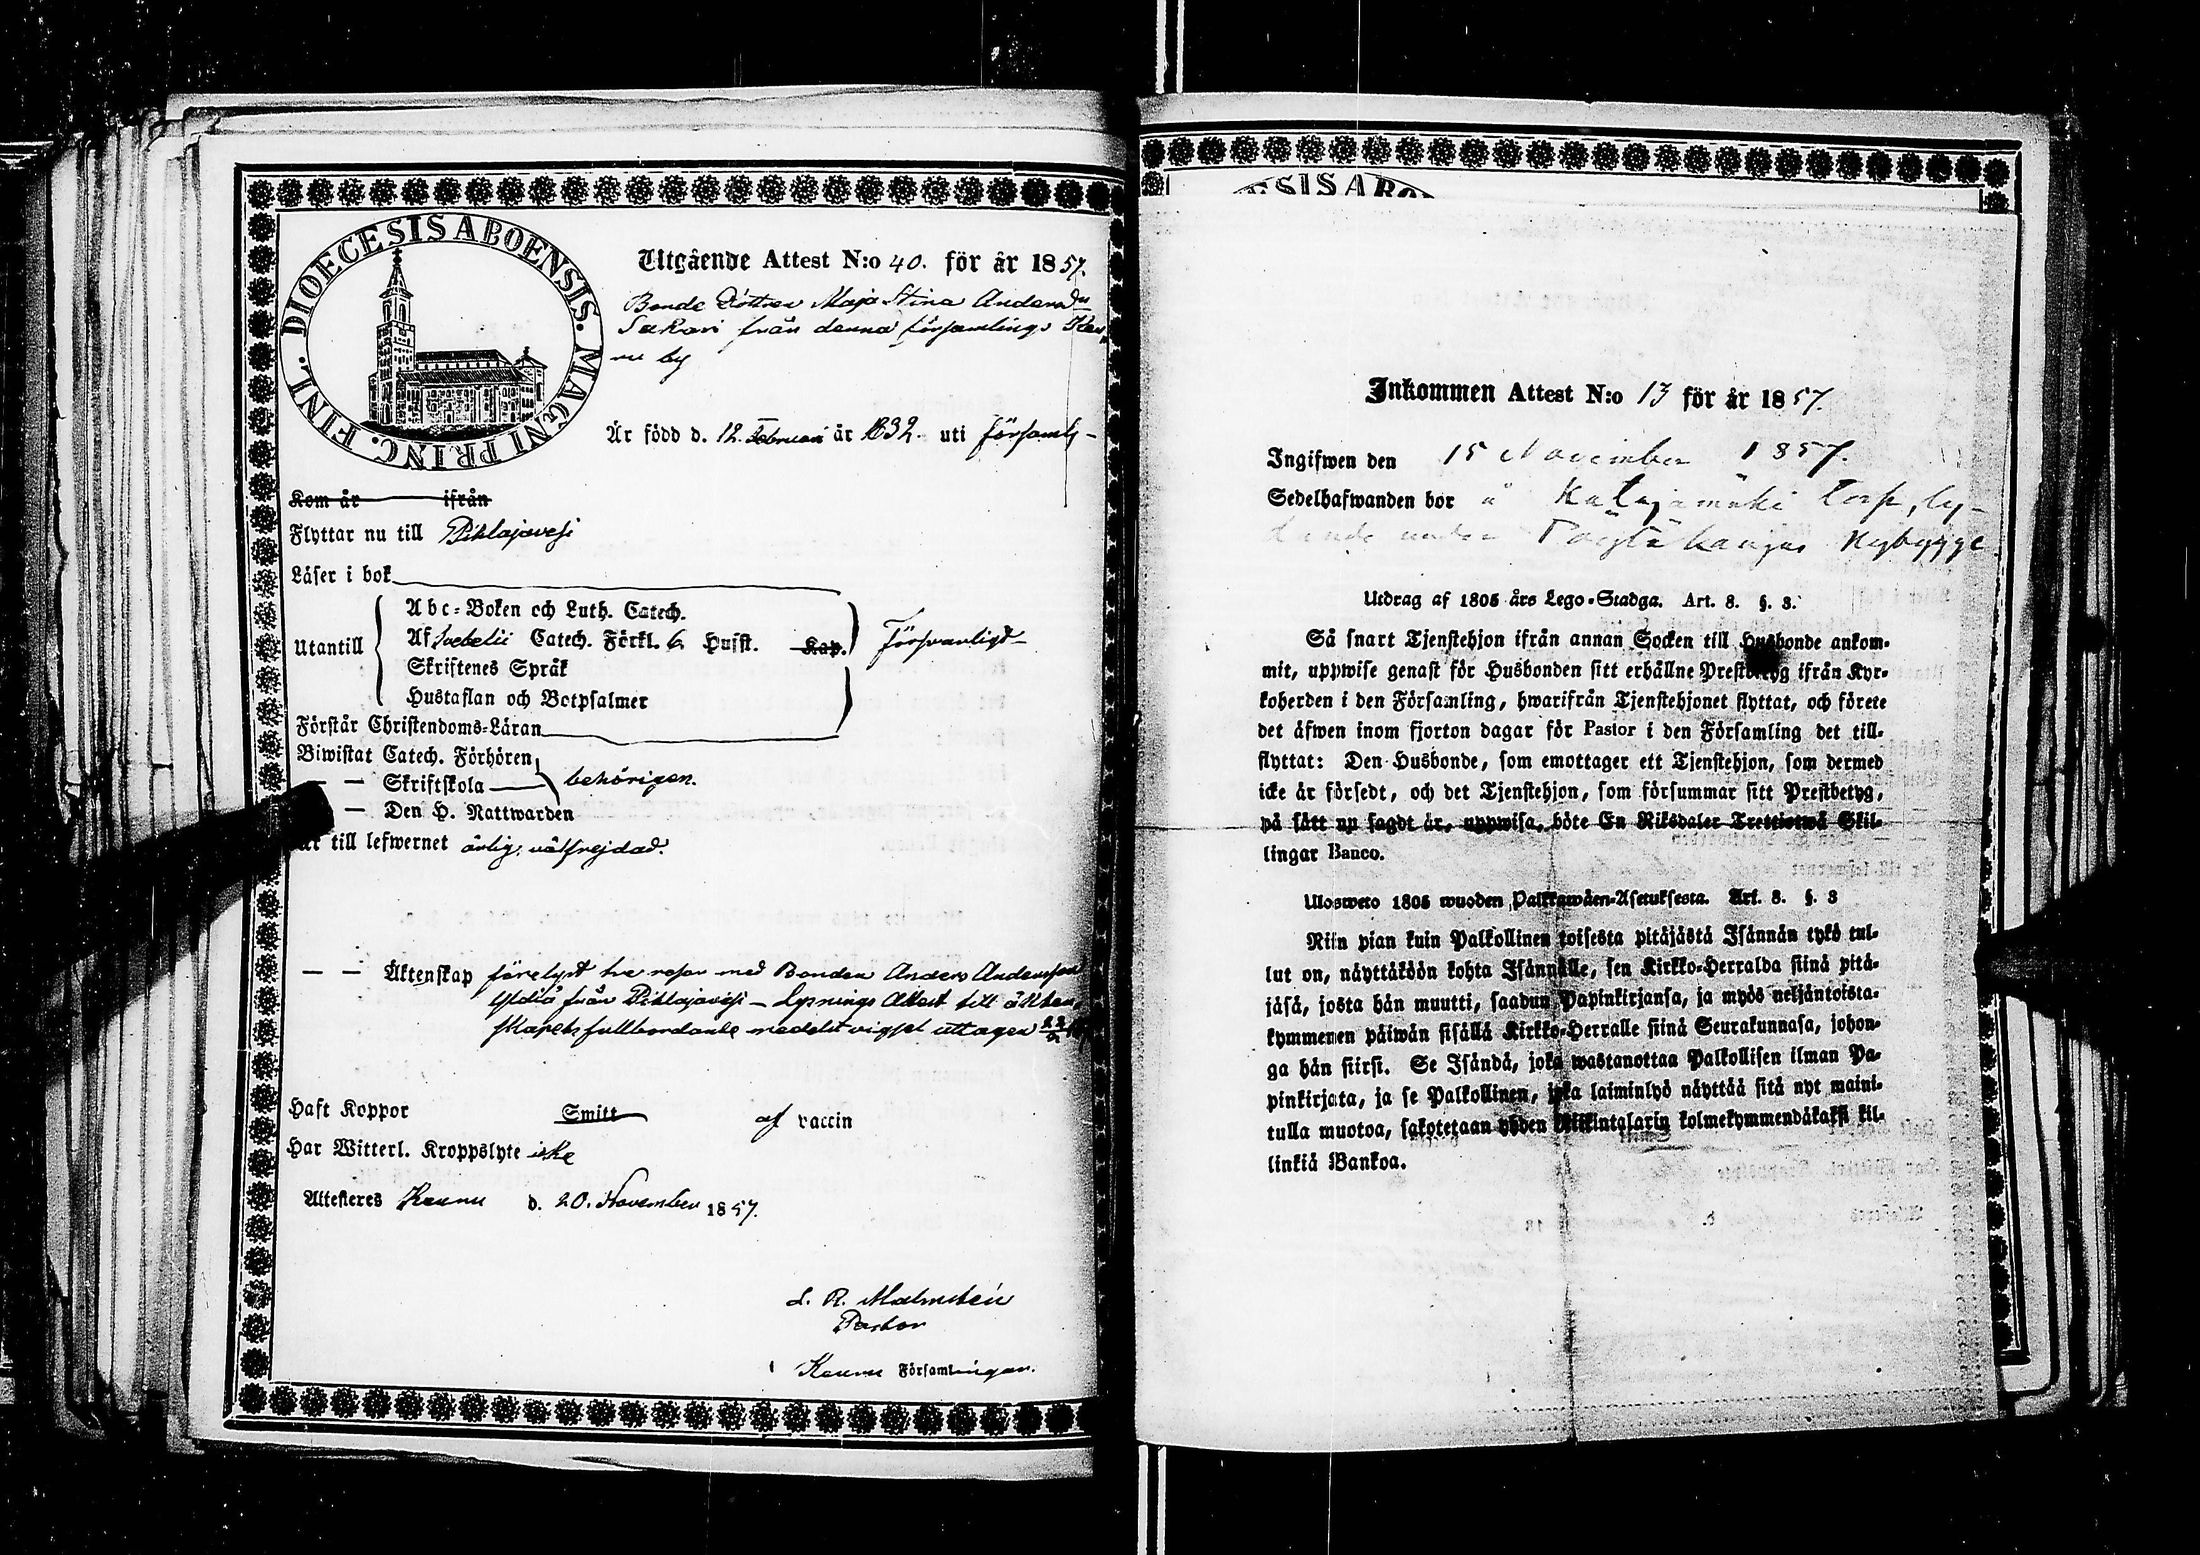 DIOECESIS ABOENSIS. MAGNI PRINC. FINL.
Utgående Attest N:o 40. för år 1857.
Bonde Dottren Maja Stina Andersdr
Sakari från denna församlings Keu
ru by
Är född d. 12. Februari år 1832. uti församl-
Kom år ifrån
Flyttar nu till Pihlajavesi
Läser i bok
Utantill
Abc-Boken och Luth. Catech.
Af Svebelii Catech. Förkl. 6 Hufst. Kap.
Skriftenes Språk
Hustaflan och Botpsalmer
försvarligt
Förstår Christendoms-Läran
Biwistat Catech. Förhören
— — Skriftskola
behörigen.
— Den H. Nattwarden
Är till lefwernet ärlig, välfrejdad.
— — Äktenskap förelyst tre resor med Bonden Anders Andersson
från Pihlajavesi — Lysnings Attest till äkten-
skapets fullbordande medelst vigsel uttagen
Haft Koppor Smitt af vaccin
Har Witterl. Kroppslyte icke
Attesteras Keuru d. 20. November 1857.
L. R. Malmstén
Pastor
i Keuru Församlingar.
ESIS ABO
Inkommen Attest N:o 13 för år 1857.
Ingifwen den 15 November 1857.
Sedelhafwanden bor å Katajamäki torp, ly-
dande under Pöytäkangas Nybygge.
Utdrag af 1805 års Lego-Stadga. Art. 8. §. 3.
Så snart Tjenstehjon ifrån annan Socken till Husbonde ankom-
mit, uppwise genast för Husbonden sitt erhållne Prestbetyg ifrån Kyr-
koherden i den Församling, hwarifrån Tjenstehjonet flyttat, och förete
det äfwen inom fjorton dagar för Pastor i den Församling det till-
flyttat: Den Husbonde, som emottager ett Tjenstehjon, som dermed
icke är försedt, och det Tjenstehjon, som försummar sitt Prestbetyg,
på sätt nu sagdt är, uppwisa, böte En Riksdaler Trettiotwå Skil-
lingar Banco.
Ulosweto 1805 wuoden Palkkawäen-Asetuksesta. Art. 8. §. 3
Niin pian kuin Palkollinen toisesta pitäjästä Isännän tykö tul-
lut on, näyttäköön kohta Isännälle, sen Kirkko-Herralda siinä pitä-
jäsä, josta hän muutti, saadun Papinkirjansa, ja myös neljäntoista-
kymmenen päiwän sisällä Kirkko-Herralle siinä Seurakunnasa, johon-
ga hän siirsi. Se Isändä, joka wastanottaa Palkollisen ilman Pa-
pinkirjata, ja se Palkollinen, joka laiminlyö näyttää sitä nyt maini-
tulla muotoa, sakotetaan yhden Riikintalarin kolmekymmendäkaksi kil-
linkiä Bankoa.